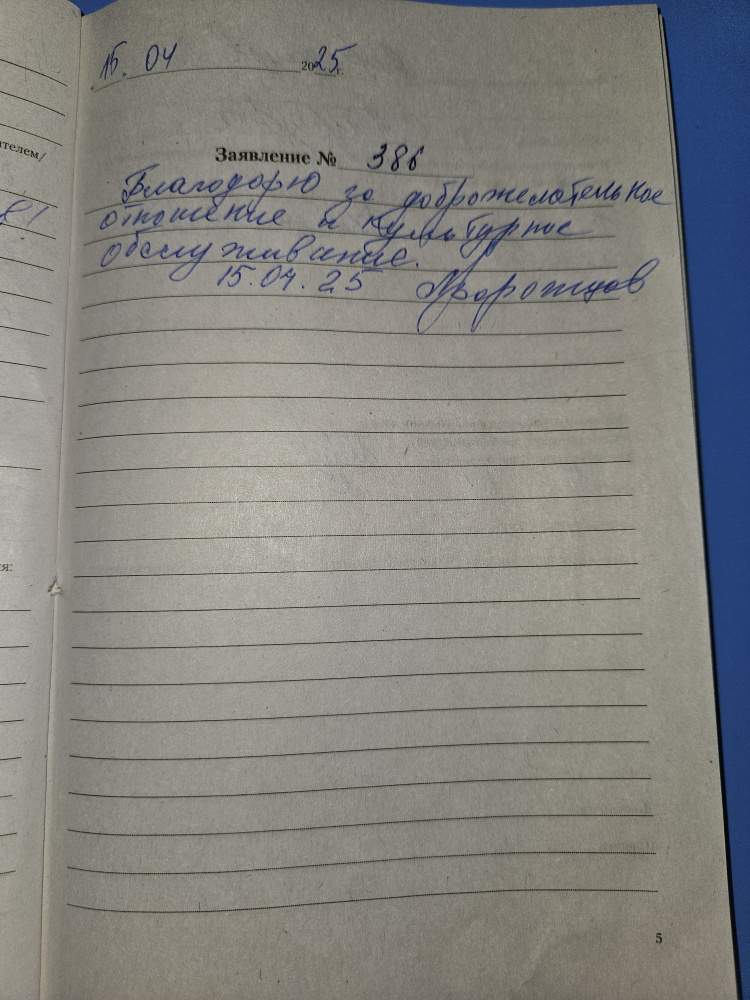 15. 04 2025 г.
ителем/
Заявление № 386
Благодарю за доброжелательное
отношение и культурное
обслуживание.
15.04.25
я:
5